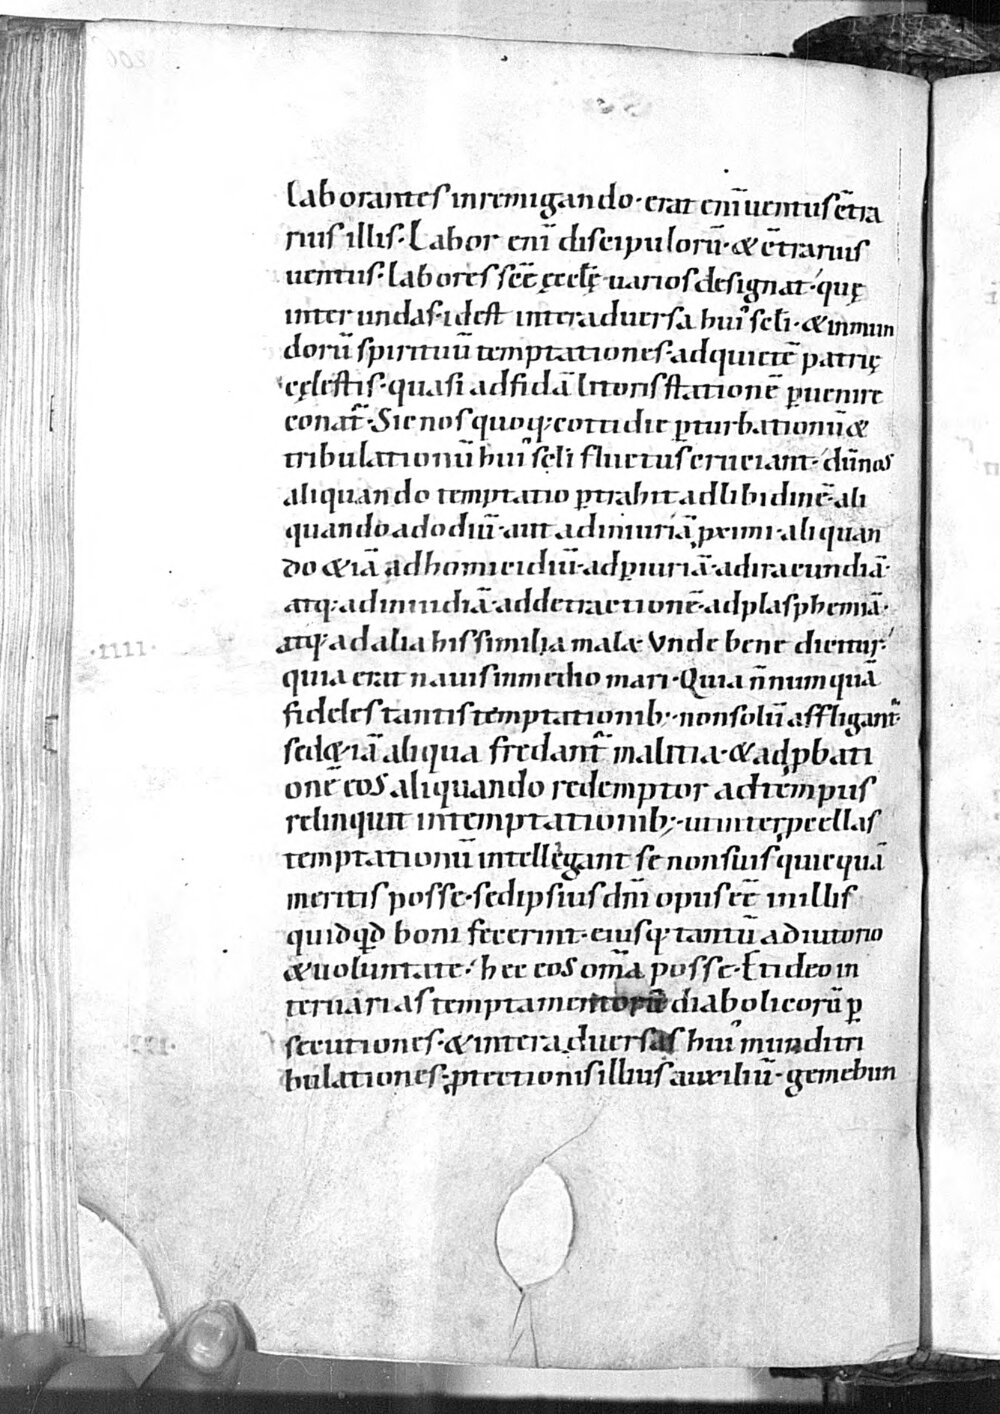 laborantes in remigando · erat eni͞ uentus c̄tra
rius illis · Labor eni͞ discipuloru͞ · & c̄trarius
uentus · labores sc̄e ęccl̄ę · uarios designat · quę
inter undas · idest inter aduersa hui᾽ sc̄li · & inmun
doru͞ spirituu͞ temptationes · ad quietē patrię
cęlestis · quasi ad fida͞ litoris stationē ꝑuenire
conat᷑ · Sic nos quoq; cottidie ꝑturbationu͞ &
tribulationu͞ hui᾽ sc̄li fluctus cruciant · du͞ nos
aliquando temptatio ꝑtrahit ad libidinē · ali
quando ad odiu͞ · aut ad iniuria͞ ꝓximi · aliquan
do & ia͞ ad homicidiu͞ · ad ꝑiuria͞ · ad iracundia͞ ·
atq; ad inuidia͞ · ad detractionē · ad plasphemia͞ ·
atq; ad alia his similia mala · Vnde bene dicitur ·
quia erat nauis in medio mari · Quia n̄ numqua͞
fideles tantis temptationib; · non solu͞ affligant᷑ ·
sed & ia͞ aliqua fredant᷑ malitia · & ad ꝓbati
onē eos aliquando redemptor ad tempus
relinquit in temptationib; · ut inter ꝓcellas
temptationu͞ intellegant se non suis quicqua͞
meritis posse · sed ipsius dn̄i opus eē t in illis
quidqd̄ boni fecerint · eiusq; tantu͞ adiutorio
& uoluntate · hec eos om̄a posse · Et ideo in
ter uarias temptamentoru͞ diabolicoru͞ ꝑ
secutiones · & inter aduersas hui᾽ mundi tri
bulationes · ꝓtectionis illius auxiliu͞ · gemebun
·IIII·